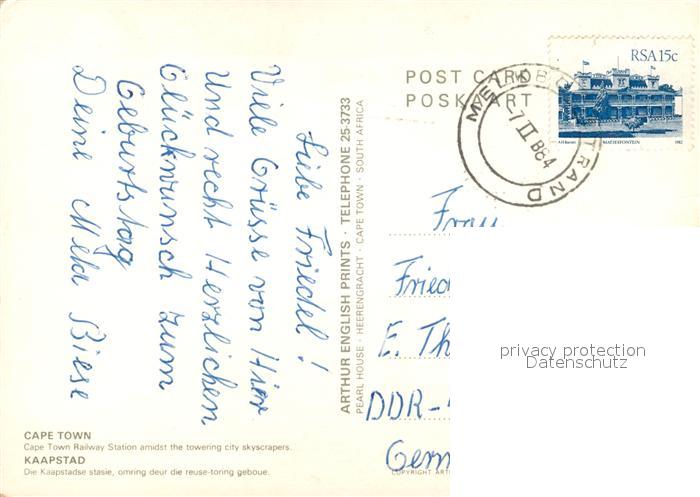 POST CARD
POSKAART
RSA 15c
MATJIESFONTEIN
1982
MELKBOSSTRAND
-7 II 84
Liebe Friedel!
Viele Grüsse von Hier
Und recht Herzlichen
Glückwunsch zum
Geburtstag
Deine Meta Biese
ARTHUR ENGLISH PRINTS · TELEPHONE 25-3733
PEARL HOUSE · HEERENGRACHT · CAPE TOWN · SOUTH AFRICA
Frau
Fried
E. Th
DDR-
Germ
privacy protection
Datenschutz
CAPE TOWN
Cape Town Railway Station amidst the towering city skyscrapers.
KAAPSTAD
Die Kaapstadse stasie, omring deur die reuse-toring geboue.
COPYRIGHT ART